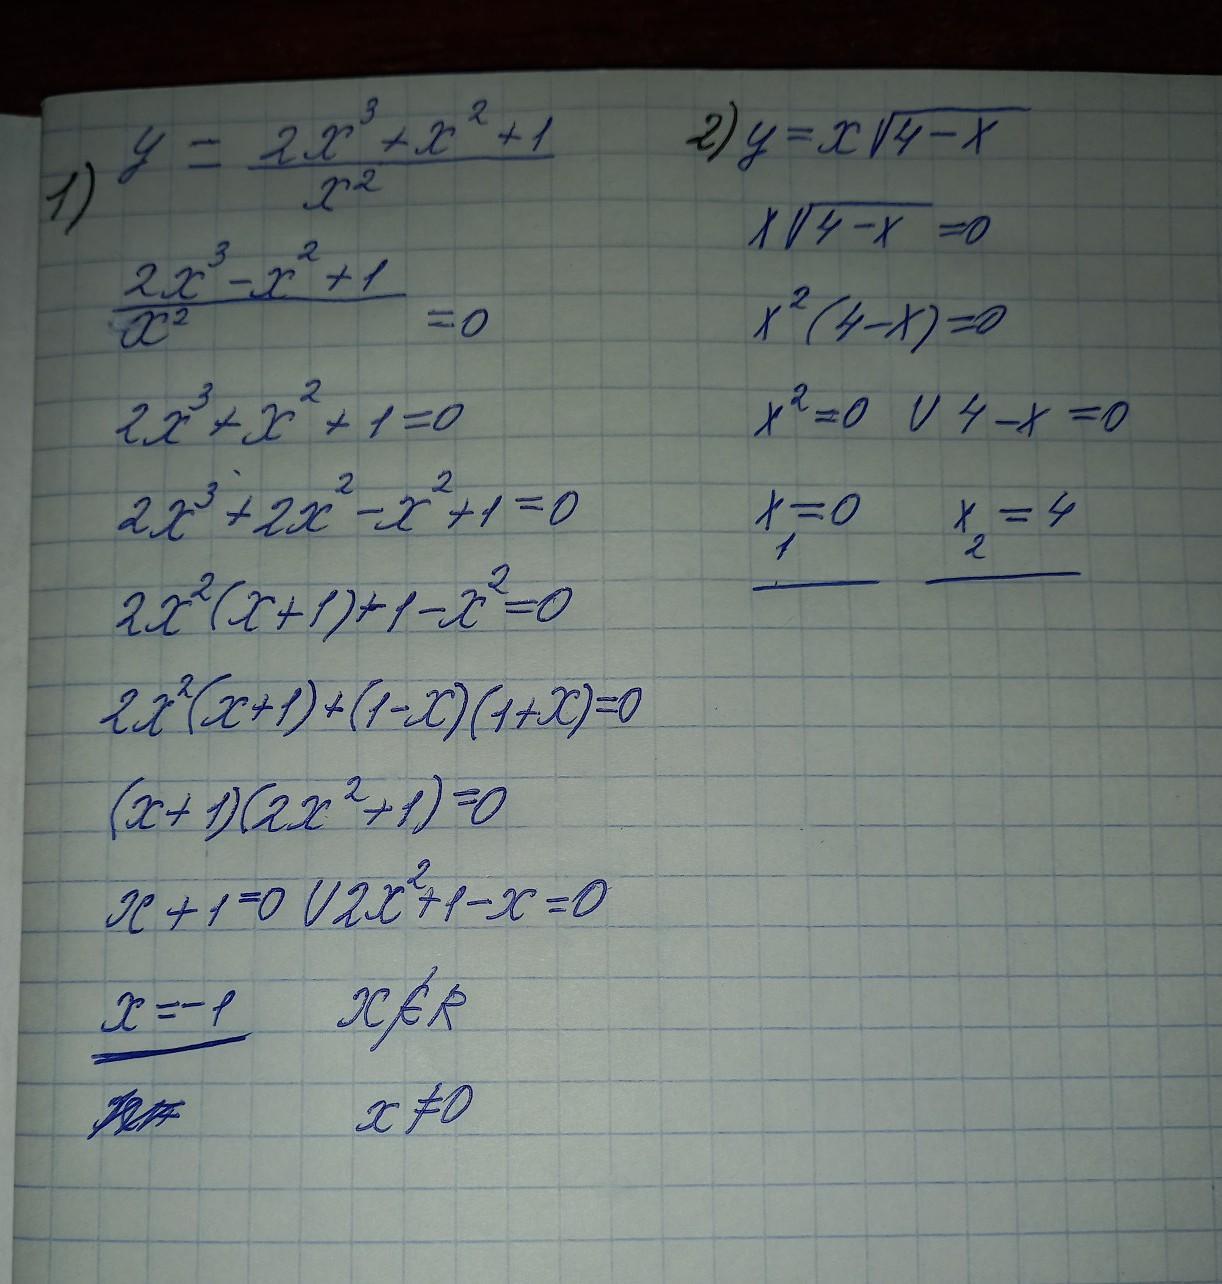 1) y = (2x³+x²+1)/x²
(2x³-x²+1)/x² =0
2x³+x²+1=0
2x³+2x²-x²+1=0
2x²(x+1)+1-x²=0
2x²(x+1)+(1-x)(1+x)=0
(x+1)(2x²+1)=0
x+1=0 V 2x²+1-x=0
x=-1 x∉R
x≠0
2) y=x√(4-x)
x√(4-x) =0
x²(4-x)=0
x²=0 V 4-x=0
x₁=0 x₂=4